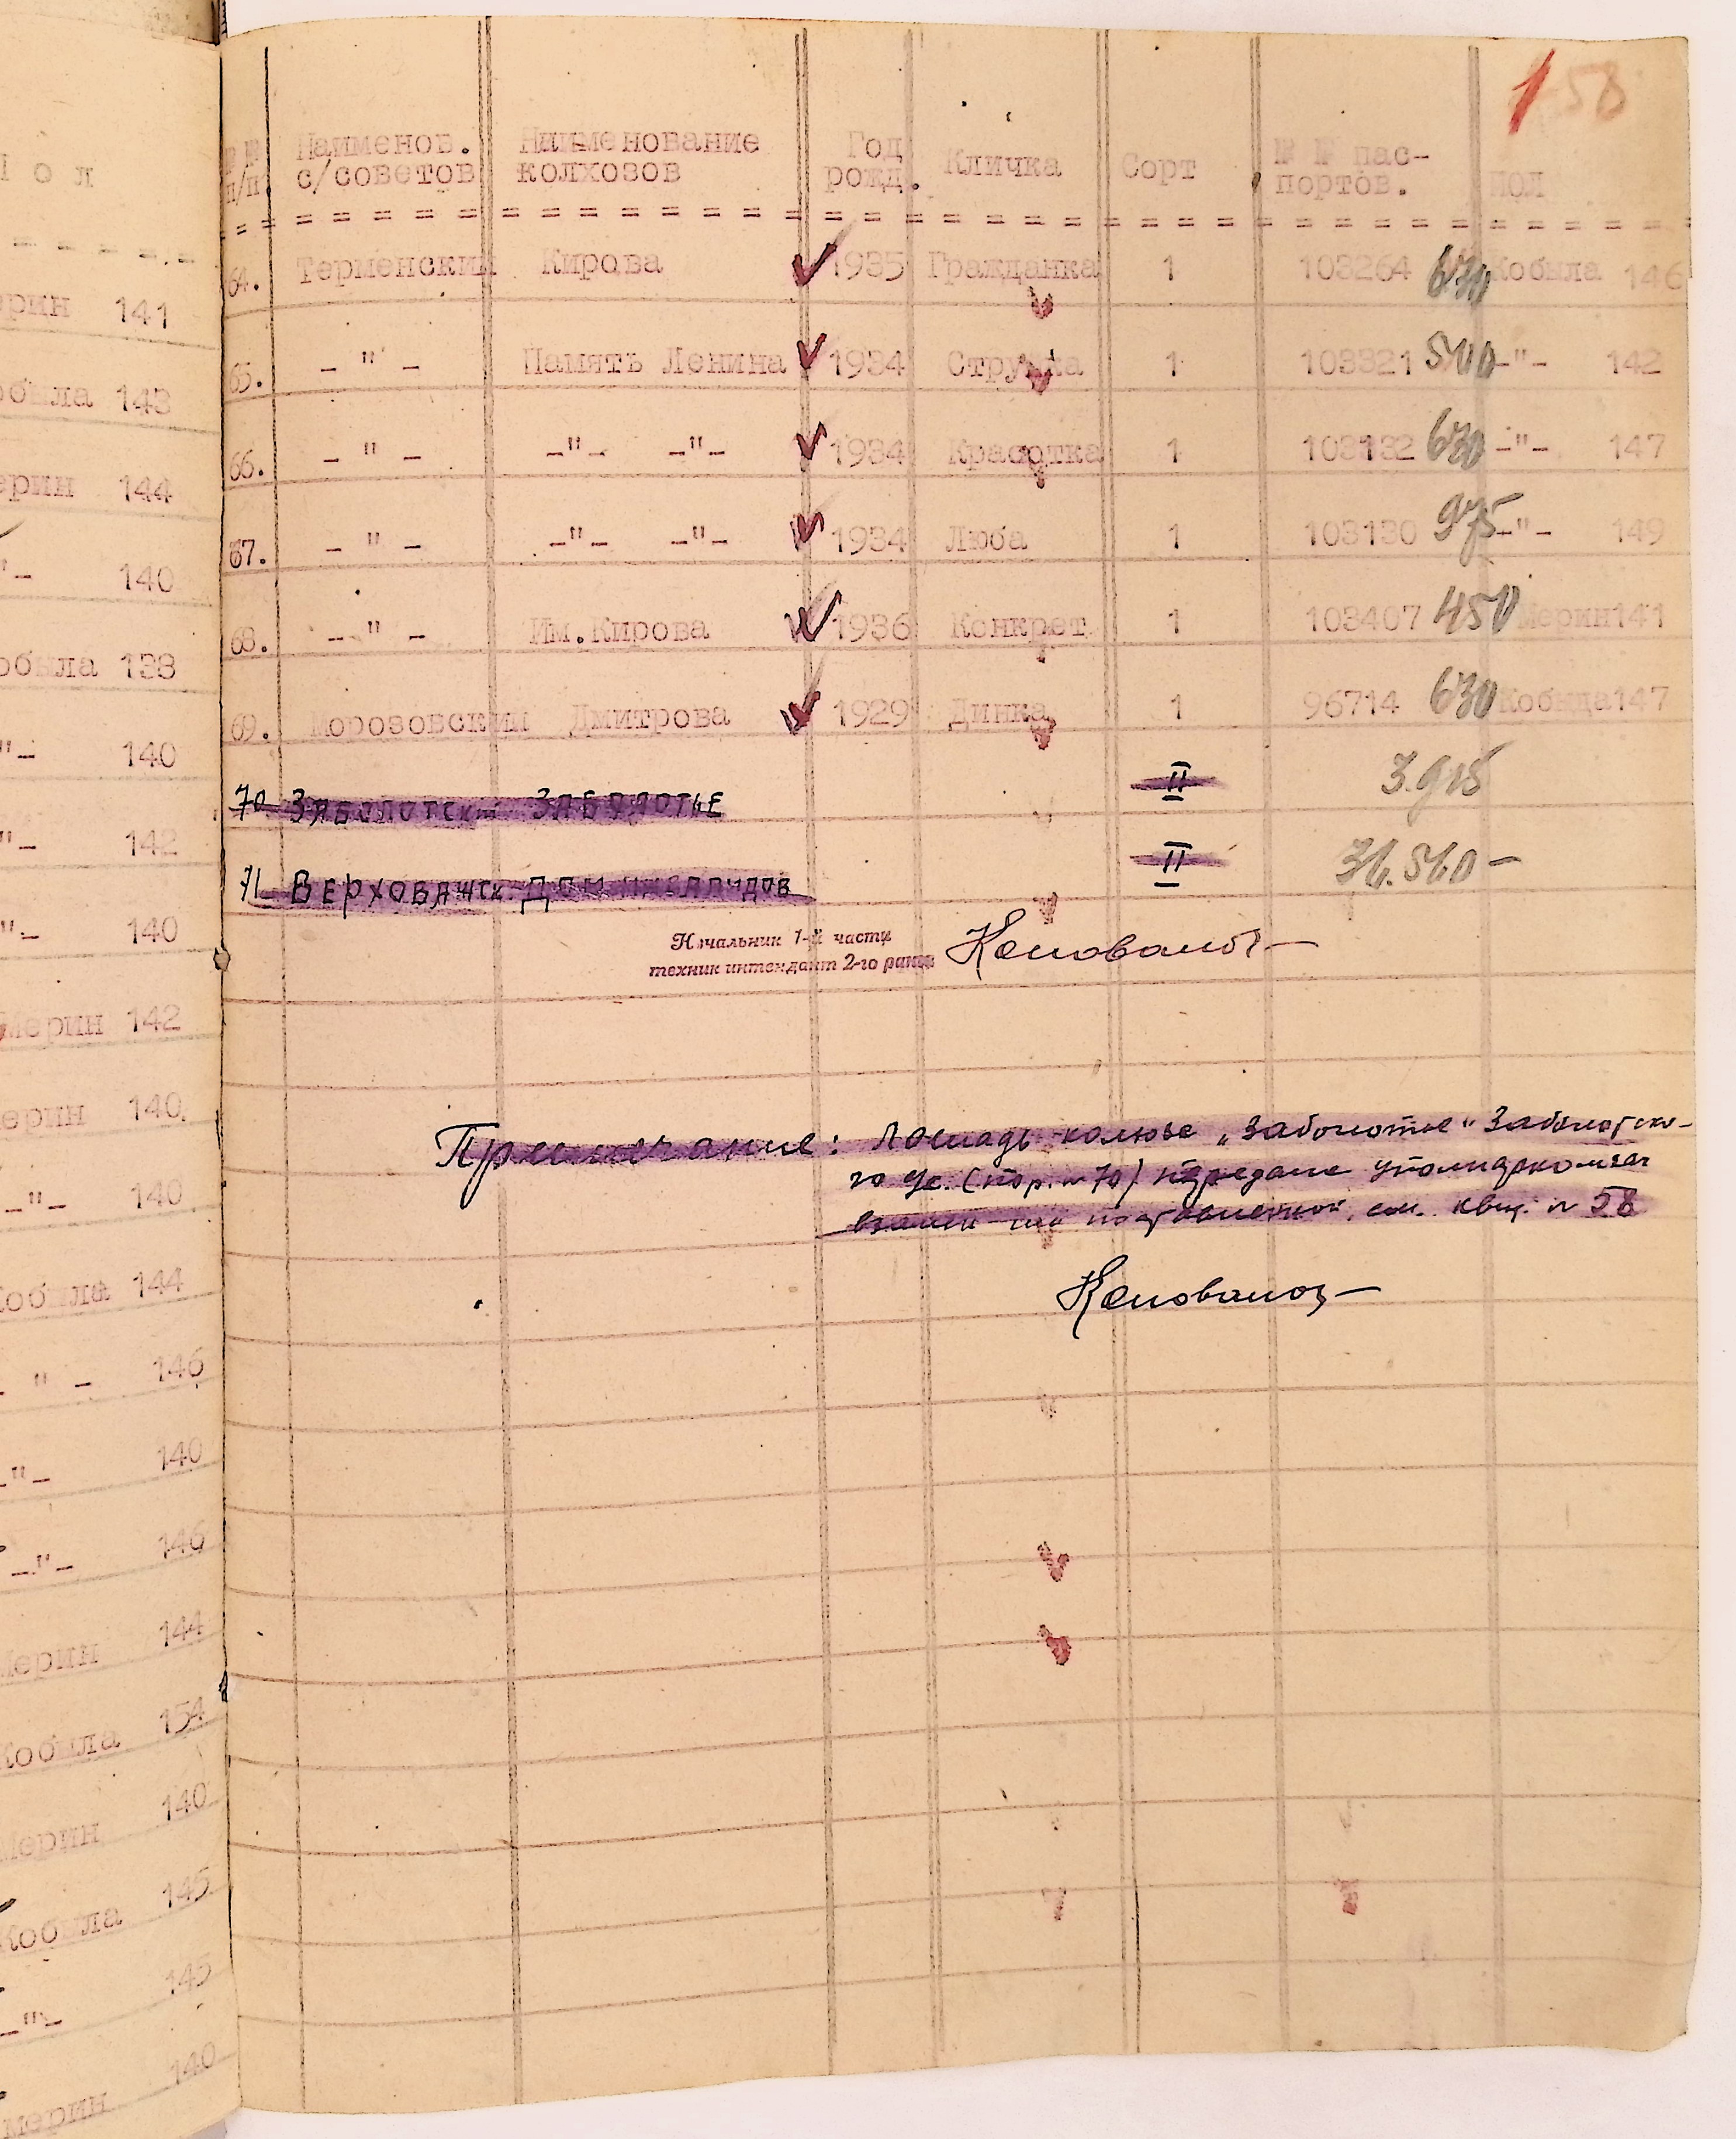 1 58
Пол
№ № п/п Наименов. с/советов Наименование колхозов Год рожд. Кличка Сорт № № пас-портов. ПОЛ
64. Терменский Кирова 1935 Гражданка 1 103264 630 Кобыла 146
65. - " - Память Ленина 1934 1 103321 500 -"- 142
66. - " - -"- -"- 1934 Красотка 1 103132 630 -"- 147
67. - " - -"- -"- 1934 Люба 1 103130 975 -"- 149
68. - " - Им.Кирова 1936 Конкрет 1 103407 450 Мерин 141
69. Морозовский Дмитрова 1929 Динка 1 96714 630 Кобыла 147
70 Заболотский Заболотье II
71 Верховажск. Дом инвалидов II
Начальник 1-й части
техник интендант 2-го ранга Коновалов
Примечание: Лошадь колхоза „Заболотье" Заболотско-
го (пор. № 70) передана
взамен не поставленной, см. квит. № 58
Коновалов
ерин 141
обыла 143
ерин 144
"- 140
обыла 138
"- 140
"- 142
"- 140
Мерин 142
ерин 140
-"- 140
Кобыла 144
- " - 146
-"- 140
-"- 146
Мерин 144
Кобыла 154
Мерин 140
Кобыла 145
-"- 145
мерин 140